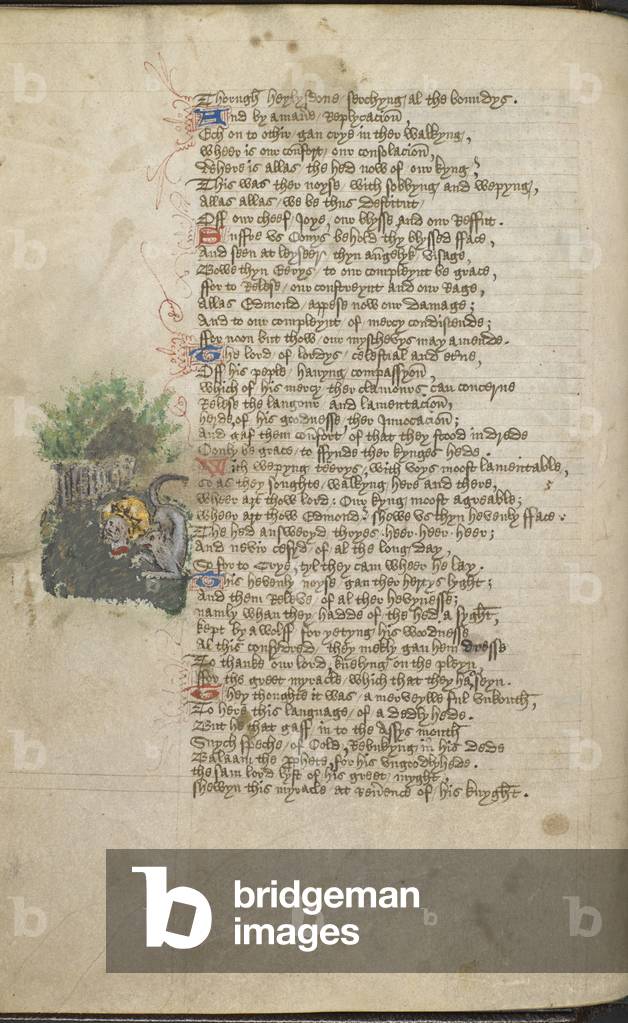 Thorugh heyly stone serchyng al the boundys.
And by amaner Replycacion,
Ech on to othir gan crye in ther walkyng,
wheer is our confort, our consolacion,
Where is allas the hed now of our kyng,
This was ther noyse, with sobbyng and wepyng,
allas allas, we be thus destitut,
Off our cheef Joye, our blysse and our Reffut.
Suffre us Onys behold thy blyssed fface,
And seen at leyseer, thyn angelyk visage,
Bowe thyn Eerys, to our compleynt be grace,
ffor to Relese, our constreynt and our Rage,
allas Edmond, appese now our damage;
And to our compleynt of mercy condiscende;
ffor noon but thow, our myschevys may amende.
The lord of lordys, celestial and eterne,
Off his peple, havyng compassyon,
which of his mercy ther clamours can concerne
Relese the langour and lamentacion,
heyde of his goodnesse, ther Invocacion;
And gaf them confort, of that they stood in drede
Oonly be grace, to ffynde ther kynges hede.
With wepyng teerys, with voys moost lamentable,
so as they soughte, walkyng here and there,
wheer art thow lord: Our kyng moost agreable;
wheer art thow Edmond: shewe us thyn hevenly fface:
The hed answeryd thryes: heer: heer: heer;
And nevir cesyd, of al the long day,
So for to Crye, tyl they cam wheer he lay.
This hevenly noyse gan ther hertys lyght;
And them Releve of al ther hevynesse;
namly whan they hadde of the hed a syght,
kept by a wolff for yetyng his woodnesse
al this consydred, they mekly gan hem dresse
To thanke our lord, knelyng on the pleyn,
ffor the greet myracle, which that they ha seyn.
They thoughte it was, a merveylle ful unkouth,
To here this language, of a dedly hede.
But he that gaff in to the assys mouth
Suych speche, of Oold, Rebukyng in his dede
Balaam the prophete, for his ungoodlyhede.
the sam lord lyst of his greet myght,
shewyn this myracle at reverence of his knyght.
bridgeman
images